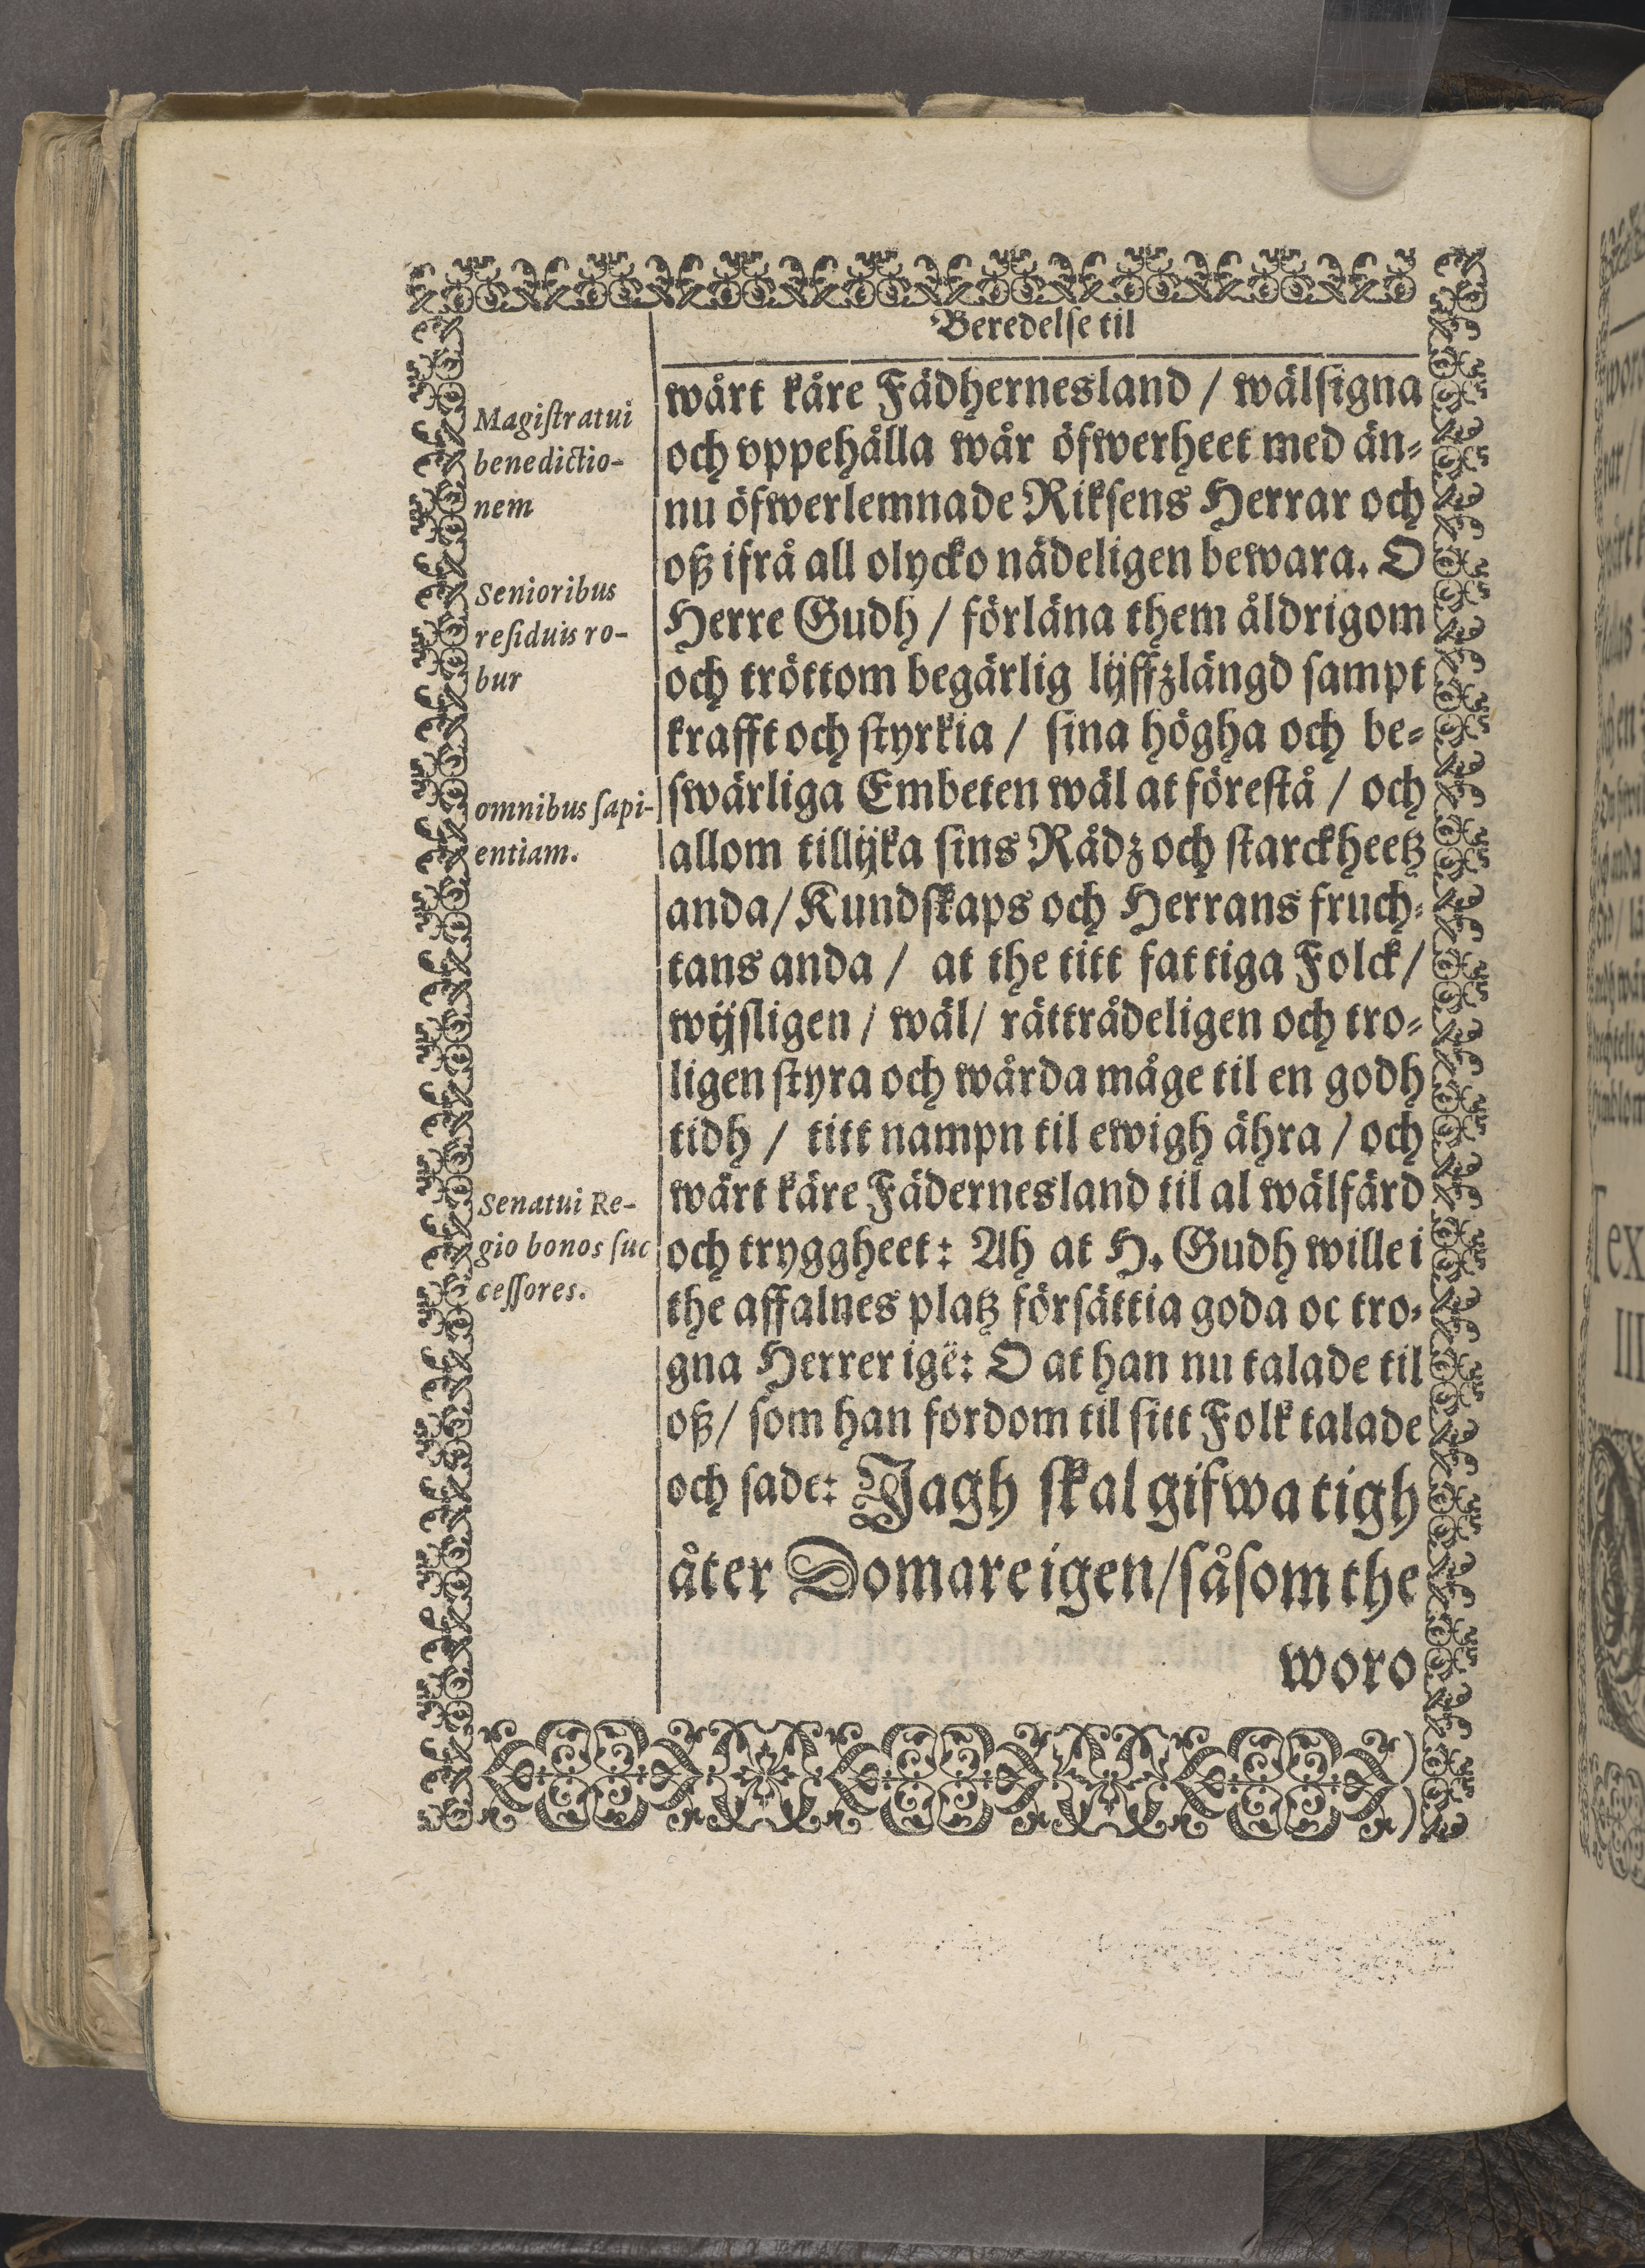 Beredelſe til
Magiſtratui
benedictio-
nem
Senioribus
reſiduis ro-
bur
omnibus ſapi-
entiam.
Senatui Re-
gio bonos ſuc
ceſſores.
wårt kåre Fädhernesland / wälſigna
och vppehålla wår öfwerheet med än-
nu öfwerlemnade Rikſens Herrar och
oß ifrå all olycko nädeligen bewara. O
Herre Gudh / förläna them åldrigom
och tröttom begärlig lijffzlängd ſampt
krafft och ſtyrkia / ſina högha och be-
ſwärliga Embeten wäl at föreſtå / och
allom tillijka ſins Rådz och ſtarckheetz
anda / Kundſkaps och Herrans fruch-
tans anda / at the titt fattiga Folck /
wijſligen / wäl / rättrådeligen och tro-
ligen ſtyra och wårda måge til en godh
tidh / titt nampn til ewigh ähra / och
wårt käre Fädernesland til al wälfärd
och tryggheet: Ah at H. Gudh wille i
the affalnes platz förſättia goda oc tro-
gna Herrer igë: O at han nu talade til
oß / ſom han fordom til ſitt Folk talade
och ſade: Jagh ſkal gifwa tigh
åter Domare igen / ſåſom the
woro